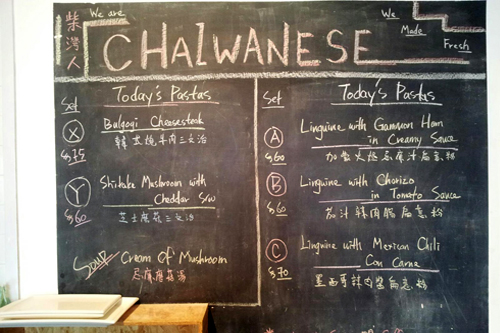 柴灣人
We are
CHAIWANESE
We
Made
Fresh
Set
Today's Pastas
X
$75
Bulgogi Cheesesteak
韓式燒牛肉三文治
Y
$60
Shiitake Mushroom with
Cheddar S/W
芝士磨菇三文治
Soup
Cream Of Mushroom
忌廉磨菇湯
Set
Today's Pastas
A
$60
Linguine with Gammon Ham
in Creamy Sauce
B
$60
Linguine with Chorizo
in Tomato Sauce
茄汁辣肉腸扁意粉
C
$70
Linguine with Mexican Chili
Con Carne
墨西哥辣肉醬扁意粉